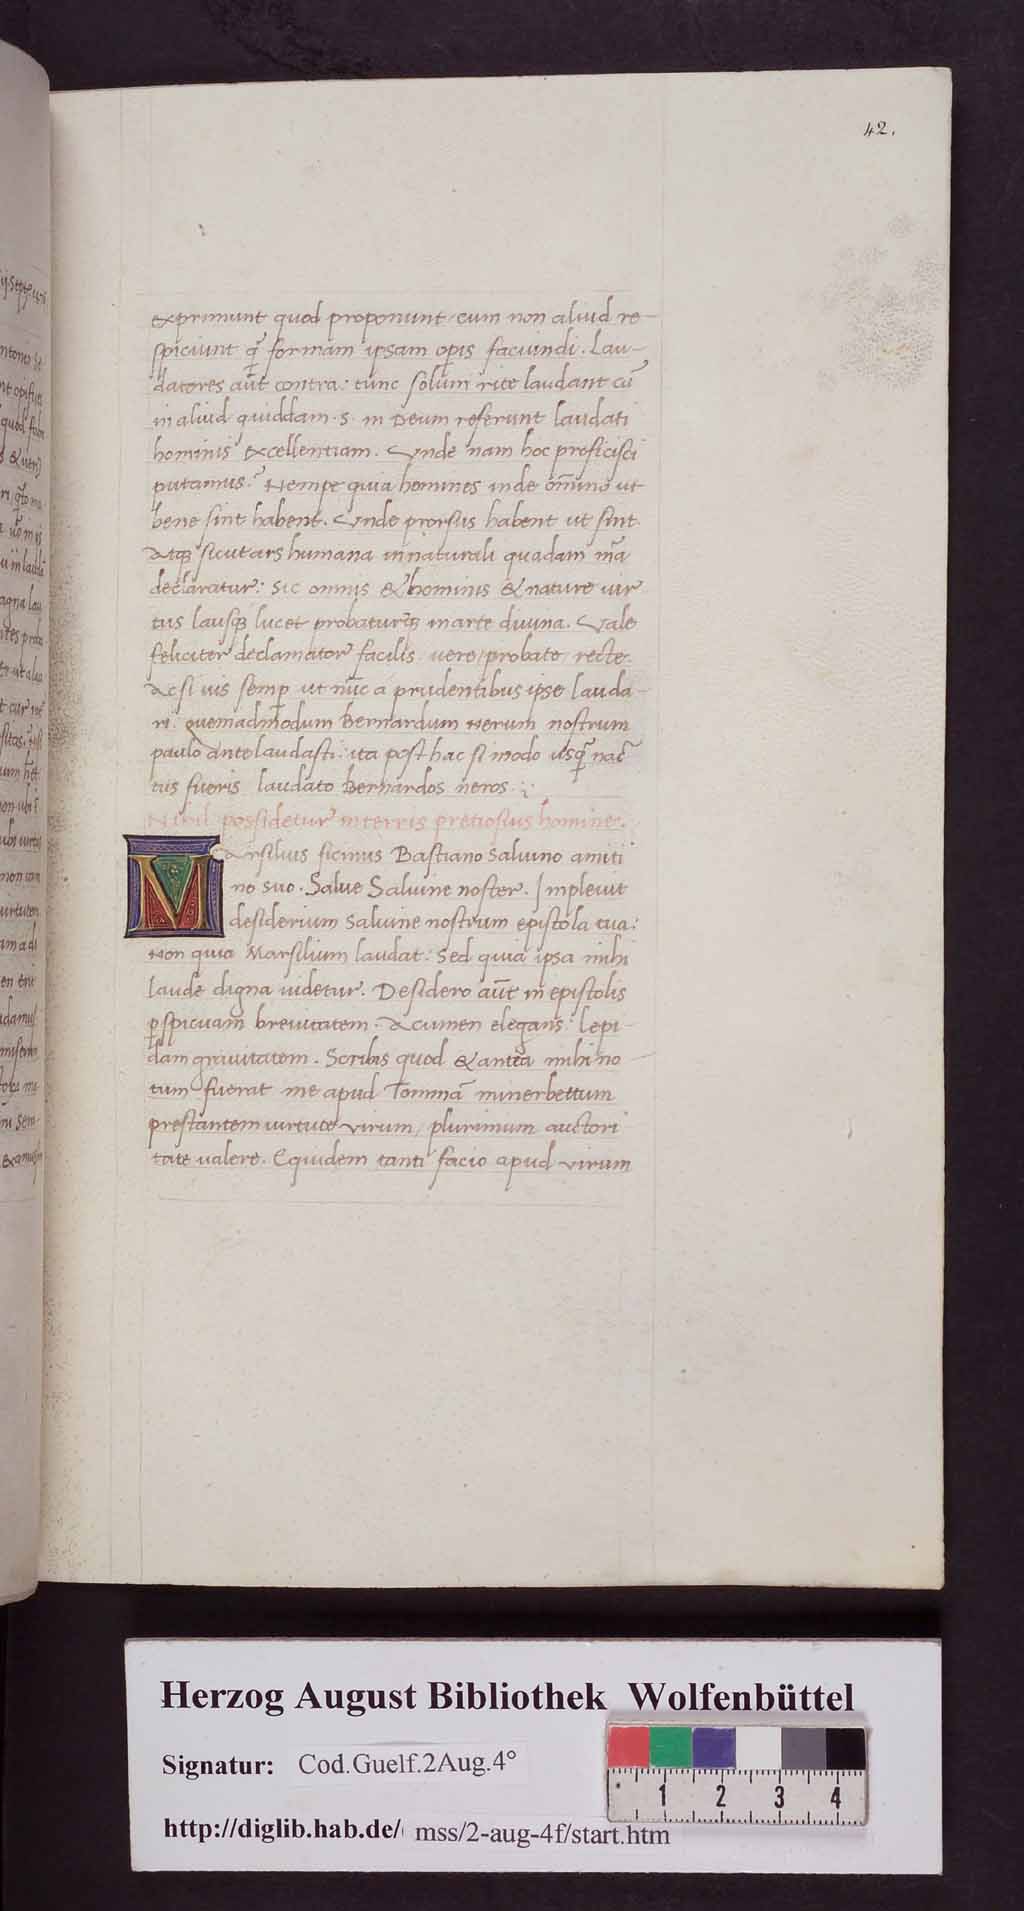 42.
exprimunt quod proponunt / cum non aliud re-
spiciunt q̃ formam ipsam op̱is faciundi. Lau-
datores aũt contra: tunc solum rite laudant cũ
in aliud quiddam .s. in Deum referunt laudati
hominis excellentiam. Unde nam hoc proficisci
putamus? Nempe quia homines inde om̃ino ut
bene sint habent. Unde prorsus habent ut sint.
Atq; sicut ars humana in naturali quadam mã
declaratur: Sic omnis & hominis & nature uir
tus lausq; lucet probaturq; in arte diuina. Vale
feliciter declamator facilis / uere / probate / recte.
Ac si uis semp̱ ut nũc a prudentibus ipse lauda-
ri. quemadmodum Bernardum Nerum nostrum
paulo ante laudasti: ita post hac si modo usq̃ nac̃
tus fueris laudato Bernardos neros .;
Nihil possidetur in terris pretiosius homine.
MArsilius ficinus Bastiano Saluino amiti
no suo. Salue Saluine noster. Impleuit
desiderium Saluine nostrum epistola tua:
Non quia Marsilium laudat: Sed quia ipsa mihi
laude digna uidetur. Desidero aũt in epistolis
p̱spicuam breuitatem. Acumen elegans: lepi-
dam grauitatem. Scribis quod & antea mihi no-
tum fuerat me apud Tommã minerbettum
prestantem uirtute virum / plurimum auctori
tate ualere. Equidem tanti facio apud virum
ij septẽ
Herzog August Bibliothek Wolfenbüttel
Signatur: Cod.Guelf.2Aug.4°
http://diglib.hab.de/ mss/2-aug-4f/start.htm
1 2 3 4